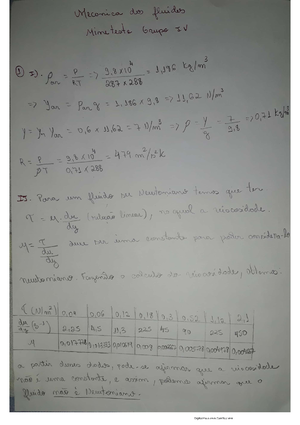 Mecanica dos fluidos
Miniteste Grupo IV
① I). ρar = P/RT => 9,8x10⁴/287x288 = 1,186 kg/m³
=> γar = ρar g = 1.186 x 9,8 => 11,62 N/m³
γ = γr γar = 0,6 x 11,62 = 7 N/m³ => ρ = γ/g = 7/9.8 => 0,71 kg/m³
R = P/ρT => 9,8x10⁴/0,71x288 = 479 m²/s²K
II. Para um fluido ser Newtoniano temos que ter
τ = μ du/dy (relação linear), no qual a viscosidade
μ = τ / du/dy deve ser uma constante para poder considera-lo
newtoniano. Fazendo o calculo da viscosidade, obtemos
τ (N/m²) 0,04 0,06 0,12 0,18 0,3 0,52 1,12 2,1
du/dy (s⁻¹) 2.25 4.5 11.3 22.5 45 90 225 450
μ
a partir desses dados, pode-se afirmar que a viscosidade
não é uma constante, e assim, podemos afirmar que o
fluido não é Newtoniano.